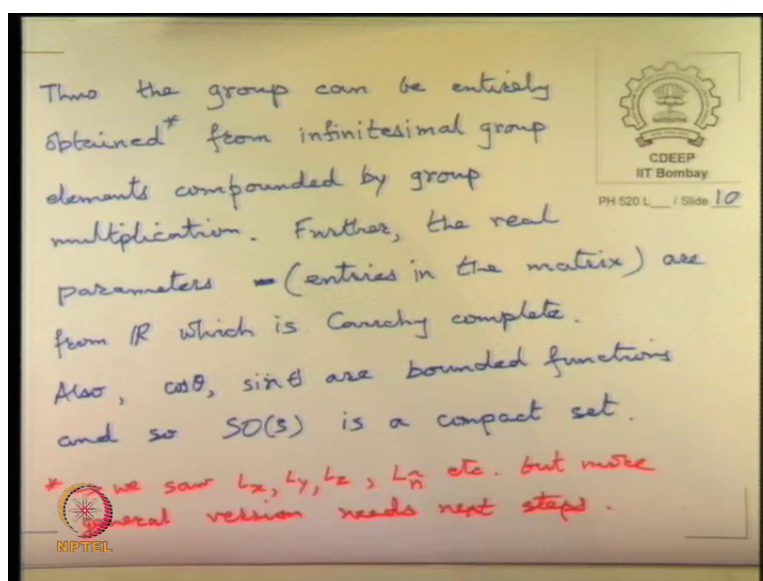 Thus the group can be entirely
obtained* from infinitesimal group
elements compounded by group
multiplication. Further, the real
parameters - (entries in the matrix) are
from ℝ which is Cauchy complete.
Also, cosθ, sinθ are bounded functions
and so SO(3) is a compact set.
* we saw Lx, Ly, Lz, Ln̂ etc. but more
general version needs next steps.
CDEEP
IIT Bombay
PH 520 L__ / Slide 10
NPTEL